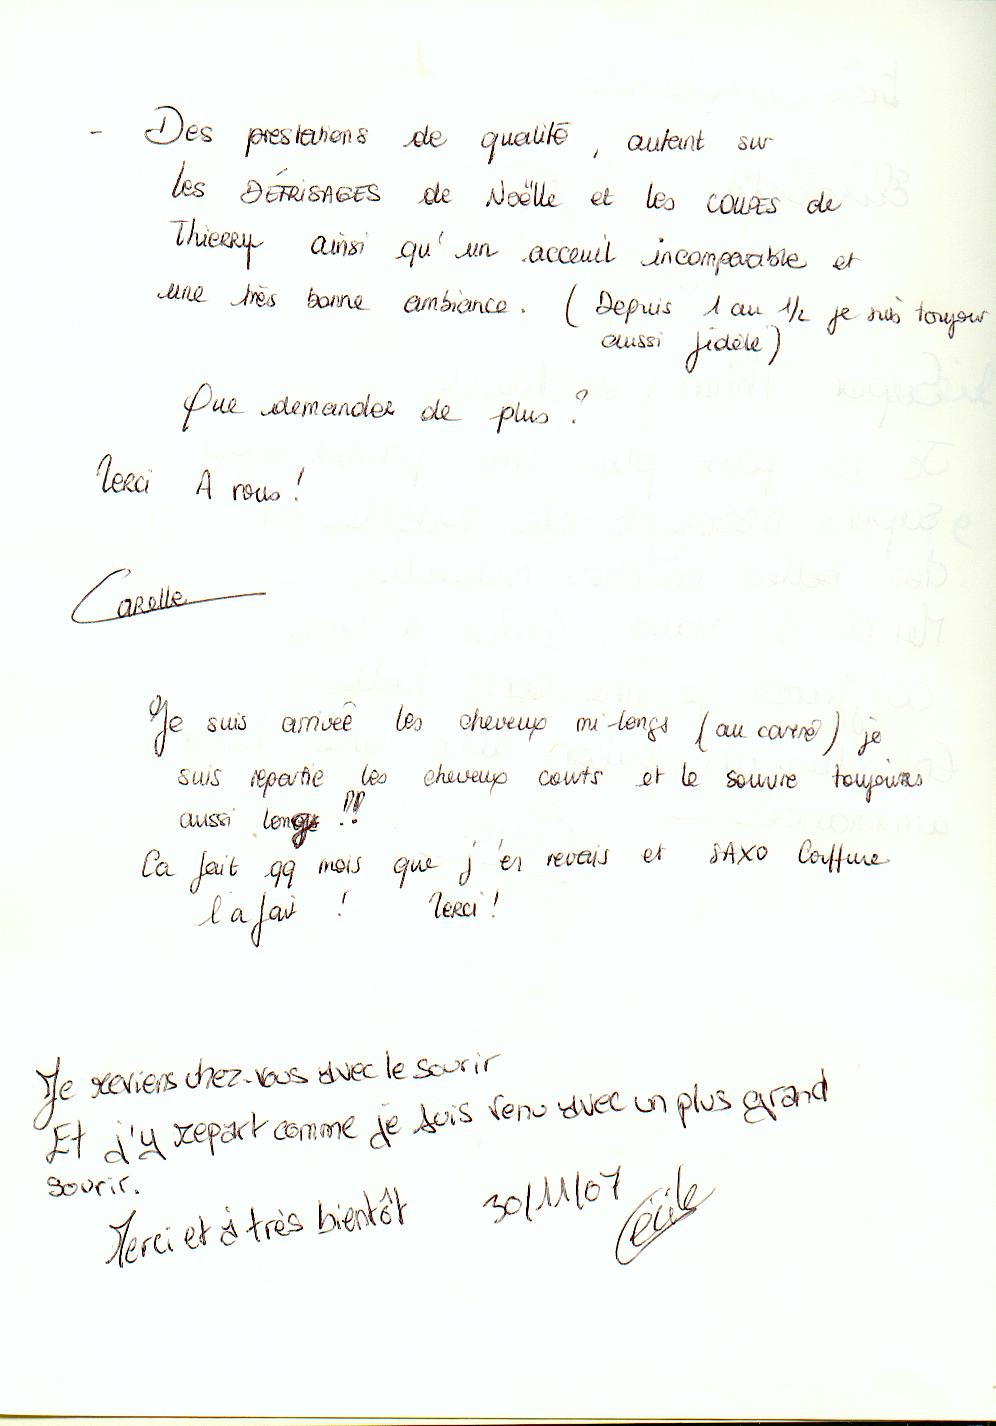 - Des prestations de qualité, autant sur
les DÉFRISAGES de Noëlle et les COUPES de
Thierry ainsi qu'un acceuil incomparable et
une très bonne ambiance. (Depuis 1 an 1/2 je suis toujour
aussi fidèle)
Que demander de plus ?
Merci A vous !
Carelle
Je suis arrivée les cheveux mi-longs (au carré) je
suis repartie les cheveux courts et le sourire toujours
aussi longs !!!
Ca fait qq mois que j'en revais et SAXO Coiffure
l'a fait ! Merci !
Je reviens chez-vous avec le sourir
Et j'y repart comme je suis venu avec un plus grand
sourir.
Merci et à très bientôt 30/11/07
Cécile